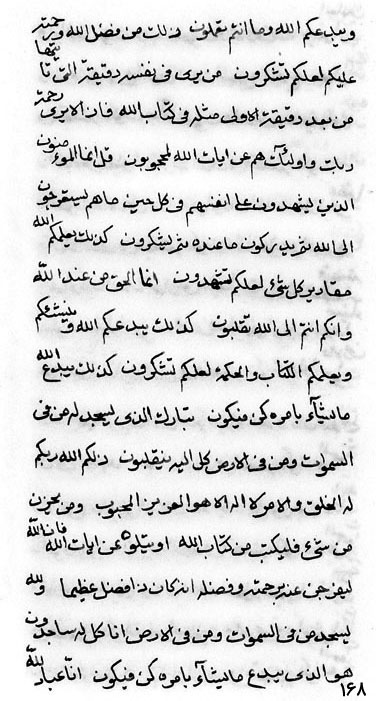 ويبدعكم الله وما انتم تعملون ذلك من فضل الله ورحمته
عليكم لعلكم تشكرون من يرى في نفسه دقيقة التي تاتيها
من بعد دقيقة الاولى مثله في كتاب الله فان الايرى رحمة
ربك واولئك هم عن ايات الله لمحجوبون قل انما المؤمنون
الذين ليشهدون على انفسهم في كل حين ما هم ليستعرجون
الى الله ثم يدركون ما عنده ثم ليشكرون كذلك يعلمكم الله
مقادير كل شئ لعلكم تشهدون انما الحق من عند الله
وانكم انتم الى الله تقلبون كذلك يبدعكم الله وينشئكم
ويعلمكم الكتاب والحكمة لعلكم تشكرون كذلك يبدع الله
ما يشآء بامره كن فيكون تبارك الذي ليسجد له من في
السموات ومن في الارض كل اليه ينقلبون ذلكم الله ربكم
له الخلق والامر لا اله الا هو العزيز المحبوب ومن يحزن
من شئ فليكتب من كتاب الله او يتلوه من ايات الله فان الله
ليفرجن عنه برحمته وفضله انه كان ذا فضل عظيما ولله
يسجد من في السموات ومن في الارض انا كل له ساجدون
هو الذي يبدع ما يشآء بامره كن فيكون انا عباد لله
۱۶۸